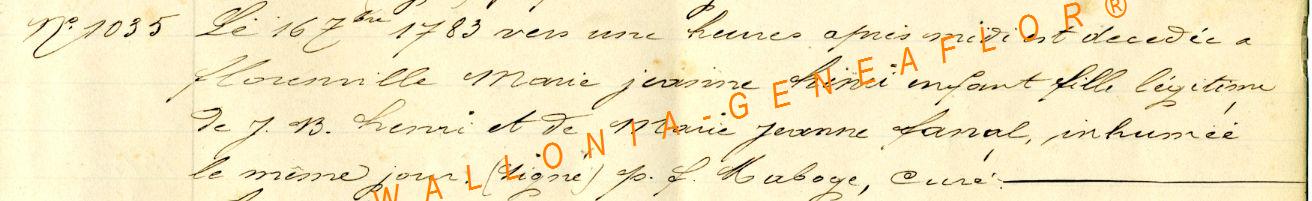 N° 1035 Le 16 7bre 1783 vers une heures après midi est decedée a
florenville Marie jeanne henri enfant fille légitime
de J. B. henri et de Marie Jeanne fanal, inhumée
le même jour. (signé) p. f. Maboge, Curé.
WALLONIA-GENEAFLOR®